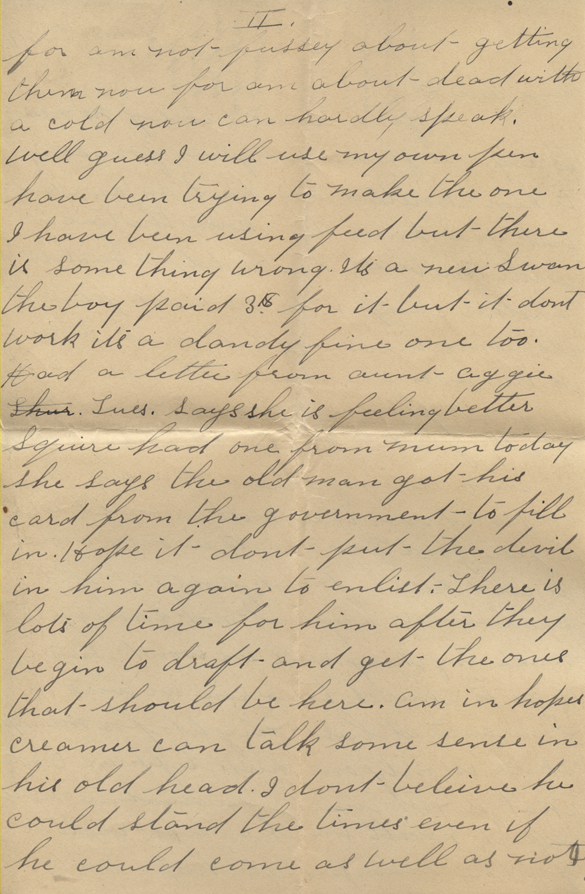 II.
for am not pussey about getting
them now for am about dead with
a cold now can hardly speak.
Well guess I will use my own pen
have been trying to make the one
I have been using feed but there
is some thing wrong. Its a new Swan
the boy paid 3.$ for it but it dont
work its a dandy fine one too.
Had a letter from aunt aggie
Thur. Tues. says she is feeling better
Squire had one from mum today
she says the old man got his
card from the government to fill
in. Hope it dont put the devil
in him again to enlist. There is
lots of time for him after they
begin to draft and get the ones
that should be here. am in hopes
creamer can talk some sense in
his old head. I dont beleive he
could stand the times even if
he could come as well as not